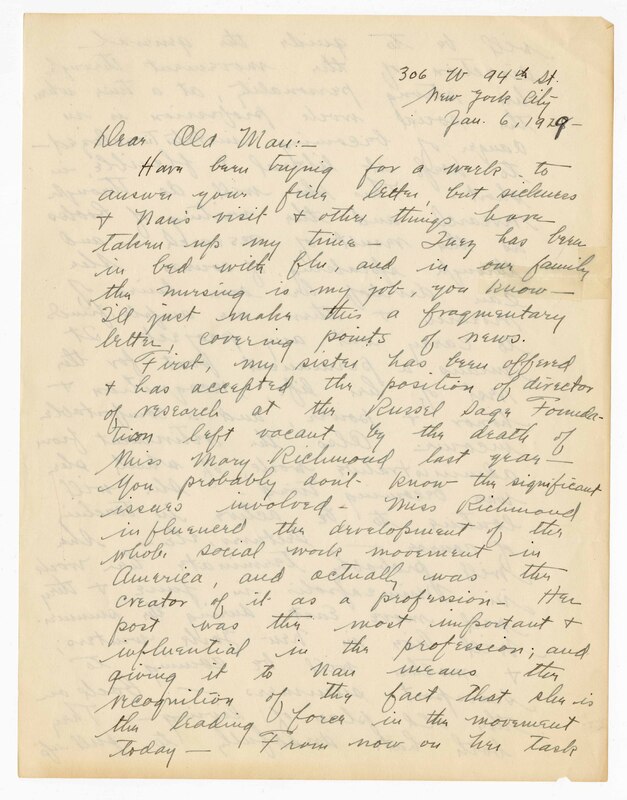 306 W 94th St.
New York City
Jan. 6, 1929-
Dear Old Man:-
Have been trying for a week to
answer your fine letter, but sickness
+ Nan's visit + other things have
taken up my time - has been
in bed with flu, and in our family
the nursing is my job, you know -
I'll just make this a fragmentary
letter, covering points of news.
First, my sister has been offered
+ has accepted the position of director
of research at the Russel Sage Founda-
tion left vacant by the death of
Miss Mary Richmond last year -
You probably don't know the significant
issues involved - Miss Richmond
influenced the development of the
whole social work movement in
America, and actually was the
creator of it as a profession - Her
post was the most important +
influential in the profession; and
giving it to Nan means the
recognition of the fact that she is
the leading force in the movement
today - From now on her task